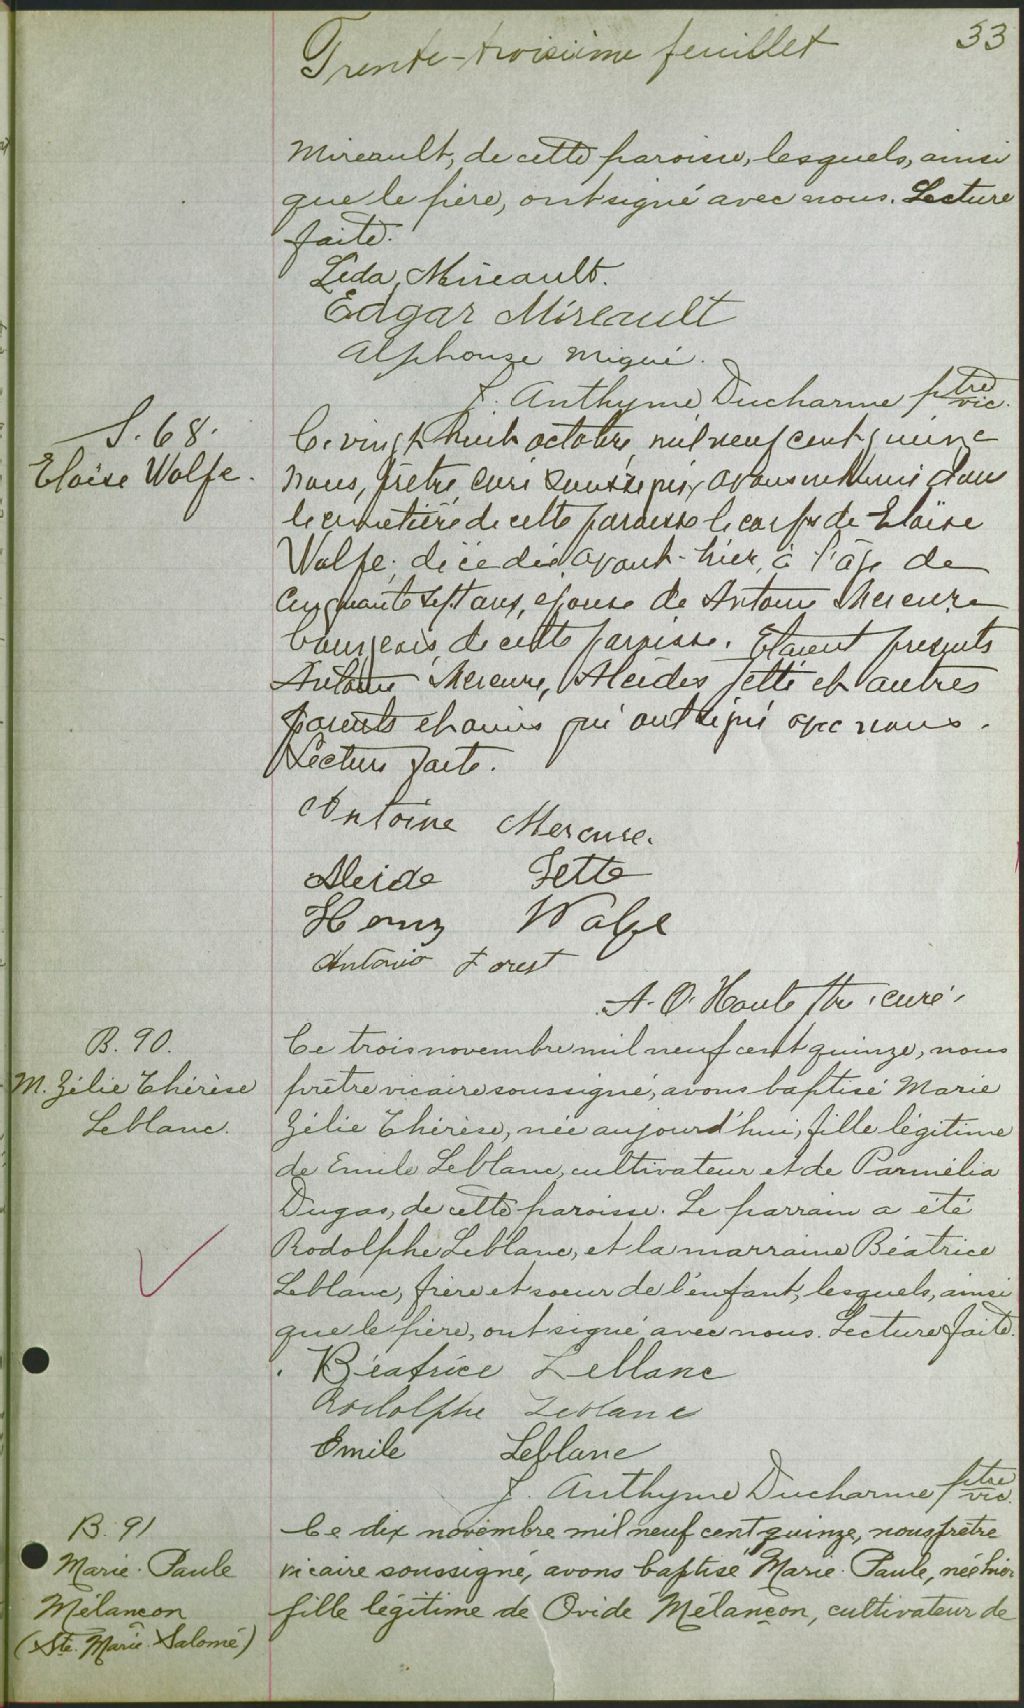 Trente-troisième feuillet
33
Mireault, de cette paroisse, lesquels, ainsi
que le père, ont signé avec nous. Lecture
faite.
Leda Mireault.
Edgar Mireault
Alphonse Migué.
J. Anthyme Ducharme ptre vic.
S. 68.
Eloïse Wolfe.
Ce vingt huit octobre, mil neuf cent quinze
nous, prêtre curé soussigné, avons inhumé dans
le cimetière de cette paroisse le corps de Eloïse
Wolfe, décédée avant-hier, à l'âge de
cinquante sept ans, épouse de Antoine Mercure
bourgeois de cette paroisse. Etaient présents
Antoine Mercure, Alcides Jetté et autres
parents et amis qui ont signé avec nous.
Lecture faite.
Antoine Mercure.
Alcide Jette
Henry Wolfe
Antonio Forest
A. O. Houle ptre curé.
B. 90.
M. Zélie Thérèse
Leblanc.
Ce trois novembre mil neuf cent quinze, nous
prêtre vicaire soussigné, avons baptisé Marie
Zélie Thérèse, née aujourd'hui, fille légitime
de Emile Leblanc, cultivateur et de Parmélia
Dugas, de cette paroisse. Le parrain a été
Rodolphe Leblanc, et la marraine Béatrice
Leblanc, frère et soeur de l'enfant, lesquels, ainsi
que le père, ont signé avec nous. Lecture faite.
Béatrice Leblanc
Rodolphe Leblanc
Emile Leblanc
J. Anthyme Ducharme ptre vic.
B. 91
Marie-Paule
Mélançon
(Ste. Marie Salomé)
Ce dix novembre mil neuf cent quinze, nous prêtre
vicaire soussigné, avons baptisé Marie-Paule, née hier
fille légitime de Ovide Mélançon, cultivateur de